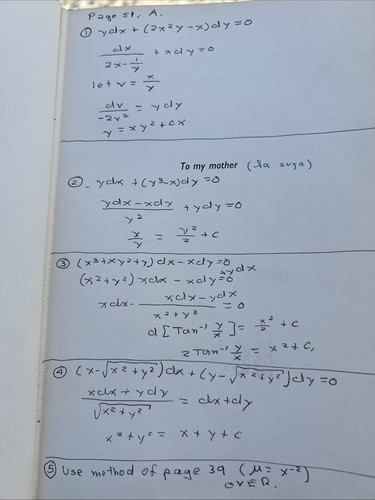 Page 51, A.
① ydx + (2x²y - x)dy = 0
dx / (2x - 1/y) + xdy = 0
let v = x/y
dv / -2v² = ydy
y = xy² + cx
To my mother (Sa suya)
② - ydx + (y³-x)dy = 0
(ydx - xdy) / y² + ydy = 0
x/y = y²/2 + c
③ (x³+xy²+y)dx - xdy = 0
(x²+y²) xdx - xdy + ydx = 0
xdx - (xdx - ydx) / (x²+y²) = 0
d[Tan⁻¹ y/x] = x²/2 + c
2 Tan⁻¹ y/x = x² + C,
④ (x - √x²+y²)dx + (y - √x²+y²)dy = 0
(xdx + ydy) / √x²+y² = dx + dy
x² + y² = x + y + c
⑤ Use method of page 39 (μ = x⁻²)
OVER.